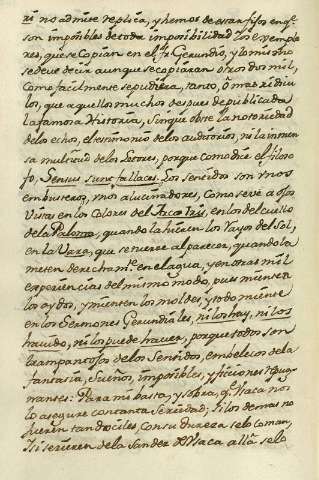 no admite replica, y hemos de estar fijos en q.e
son impossibles de toda impossibilidad los exemplares
res, que se copian en el fr. Gerundio, y lo mismo
se deve decir aunque se copiaran otros dos mil,
como facilmente se pudiera, tanto, ò mas ridicu
los, que aquellos muchos despues de publicada
la famosa Historia, sin que obste la notoriedad
de los echos, el testimonio de los auditorios, ni la inmen
sa multitud de los Letores, porque como dice el filoso
fo, Sensus sunt fallaces. Los sentidos son unos
embusteros, y unos alucinadores, como se vè a ojos
vistas en los colores del Arco Iris, en los del cuello
de la Paloma, quando la hieren los rayos del Sol,
en la Vara, que se tuerce al parecer, quando la
meten derecham.te en el agua, y en otras mil
experiencias del mismo modo, pues mienten
los oydos, y mienten los moldes, y todo miente
en los Sermones Gerundiales, ni los hay, ni los
havido, ni los puede haver, porque todos son
trampantojos de los Sentidos, embelecos de la
fantasia, Sueños, impossibles, y ficciones
Para mi basta, y sobra, q.e Ysaca nos
lo asegure con tanta Seriedad; si los demas no
fueren tan dociles, con su dureza se lo coman,
y si se rieren de la Sandez de Ysaca allà se lo